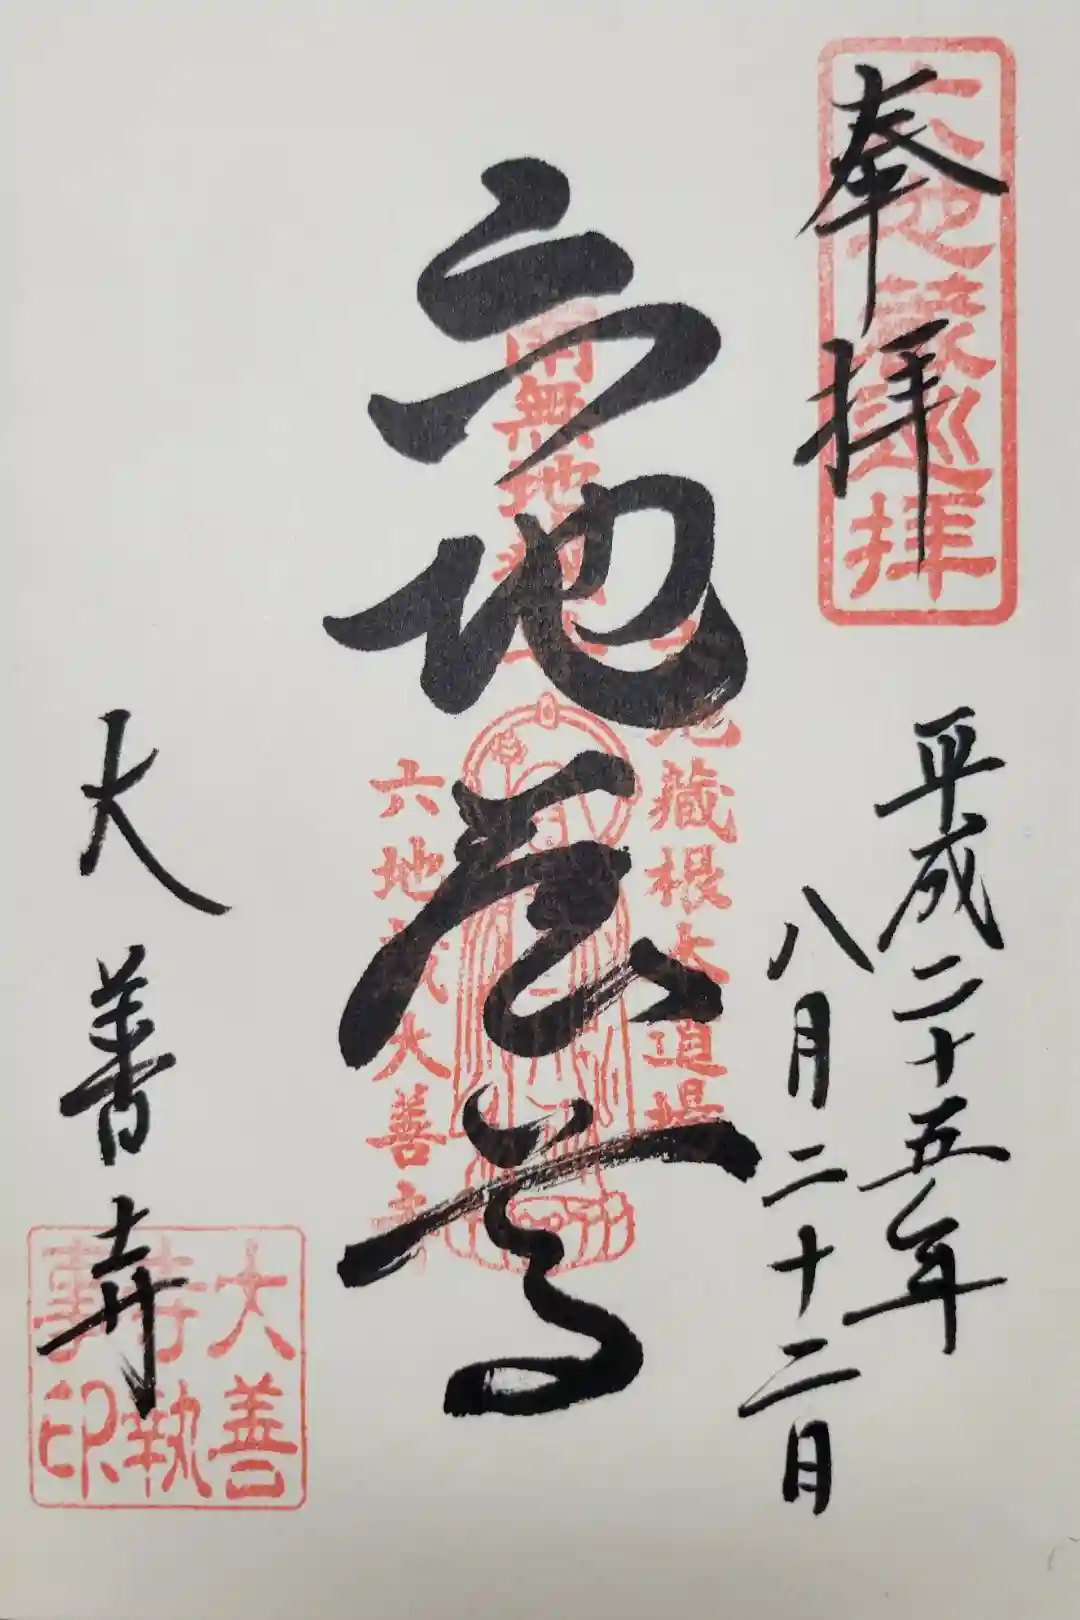 奉拝
六地蔵巡拝
平成二十五年
八月二十二日
六地蔵尊
南無地蔵
蔵根本道場
六地蔵大善寺
大善寺
大善寺執事印